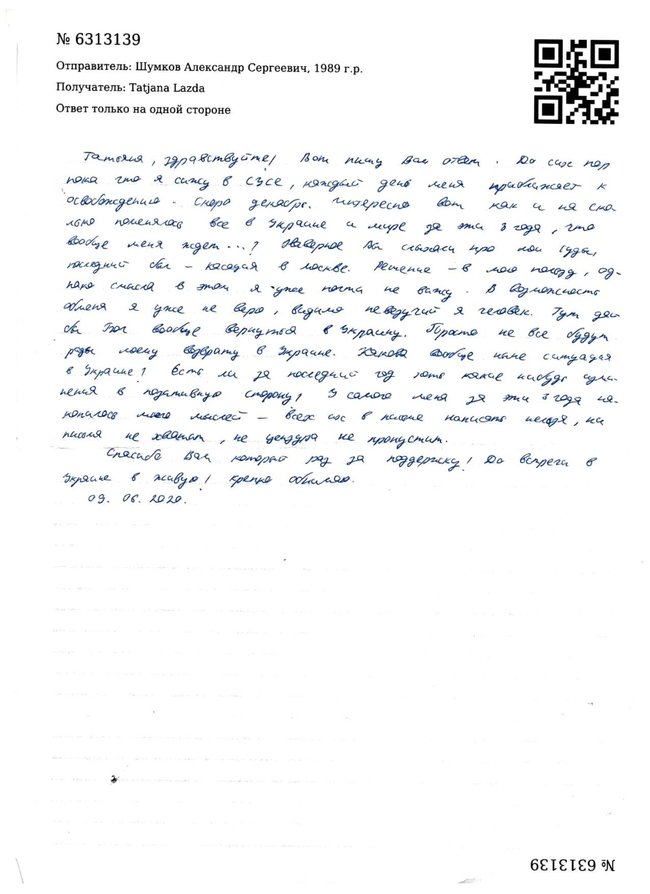 № 6313139
Отправитель: Шумков Александр Сергеевич, 1989 г.р.
Получатель: Tatjana Lazda
Ответ только на одной стороне
Татьяна, здравствуйте! Вот пишу Вам ответ. До сих пор
пока что я сижу в СУСе, каждый день меня приближает к
освобождению. Скоро декабрь. Интересно вот как и на ско-
лько поменялось все в Украине и мире за эти 3 года, что
вообще меня ждет...? Наверное Вы слышали про мои суды,
последний был – касация в Москве. Решение – в мою пользу, од-
нако смысла в этом я уже почти не вижу. В возможность
обмена я уже не верю, видимо невезучий я человек. Тут дай
бы Бог вообще вернуться в Украину. Просто не все будут
рады моему возврату в Украине. Какова вообще ныне ситуация
в Украине! Есть ли за последний год хоть какие нибудь изме-
нения в позитивную сторону! У самого меня за эти 3 года на-
копилось много мыслей – всех их в письме написать нельзя, ни
письма не хватит, не цензура не пропустит.
Спасибо Вам который раз за поддержку! До встречи в
Украине в живую! Крепко обнимаю.
09. 06. 2020.
№ 6313139